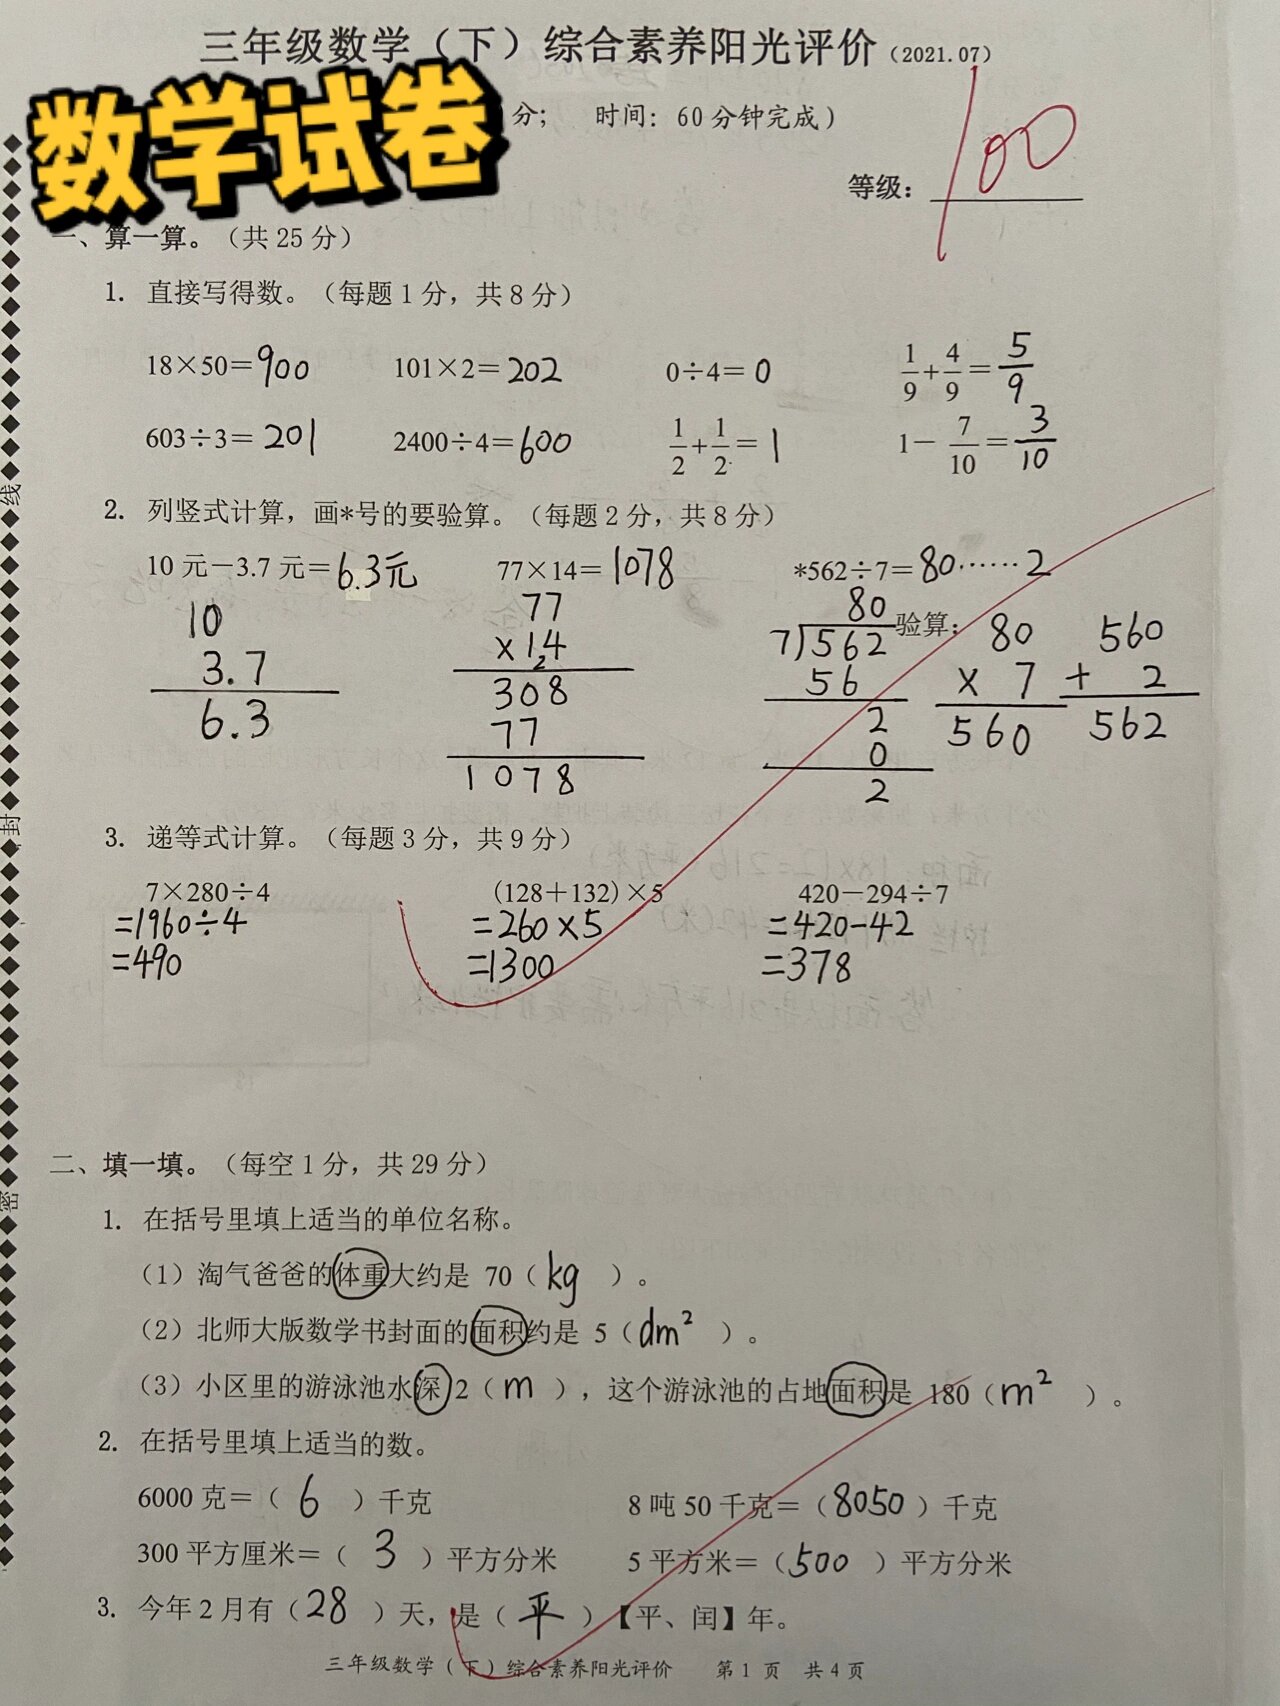 三年级数学（下）综合素养阳光评价（2021.07）
数学试卷
分; 时间: 60分钟完成)
等级: 100
一、算一算。（共25分）
1. 直接写得数。（每题1分，共8分）
18×50=900 101×2=202 0÷4=0 1/9+4/9=5/9
603÷3=201 2400÷4=600 1/2+1/2=1 1-7/10=3/10
2. 列竖式计算，画*号的要验算。（每题2分，共8分）
10元-3.7元=6.3元 77×14=1078 *562÷7=80……2
10
3.7
6.3
77
×14
2
308
77
1078
80
7)562
56
2
0
2
验算:
80
×7
560
560
+2
562
3. 递等式计算。（每题3分，共9分）
7×280÷4 (128+132)×5 420-294÷7
=1960÷4 =260×5 =420-42
=490 =1300 =378
二、填一填。（每空1分，共29分）
1. 在括号里填上适当的单位名称。
（1）淘气爸爸的体重大约是 70（kg）。
（2）北师大版数学书封面的面积约是 5（dm²）。
（3）小区里的游泳池水深2（m），这个游泳池的占地面积是 180（m²）。
2. 在括号里填上适当的数。
6000克=（6）千克 8吨50千克=（8050）千克
300平方厘米=（3）平方分米 5平方米=（500）平方分米
3. 今年2月有（28）天，是（平）【平、闰】年。
三年级数学（下）综合素养阳光评价 第1页 共4页
线
封
密